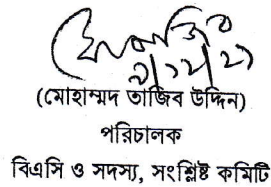 (মোহাম্মদ তাজিব উদ্দিন)
পরিচালক
বিএসি ও সদস্য, সংশ্লিষ্ট কমিটি